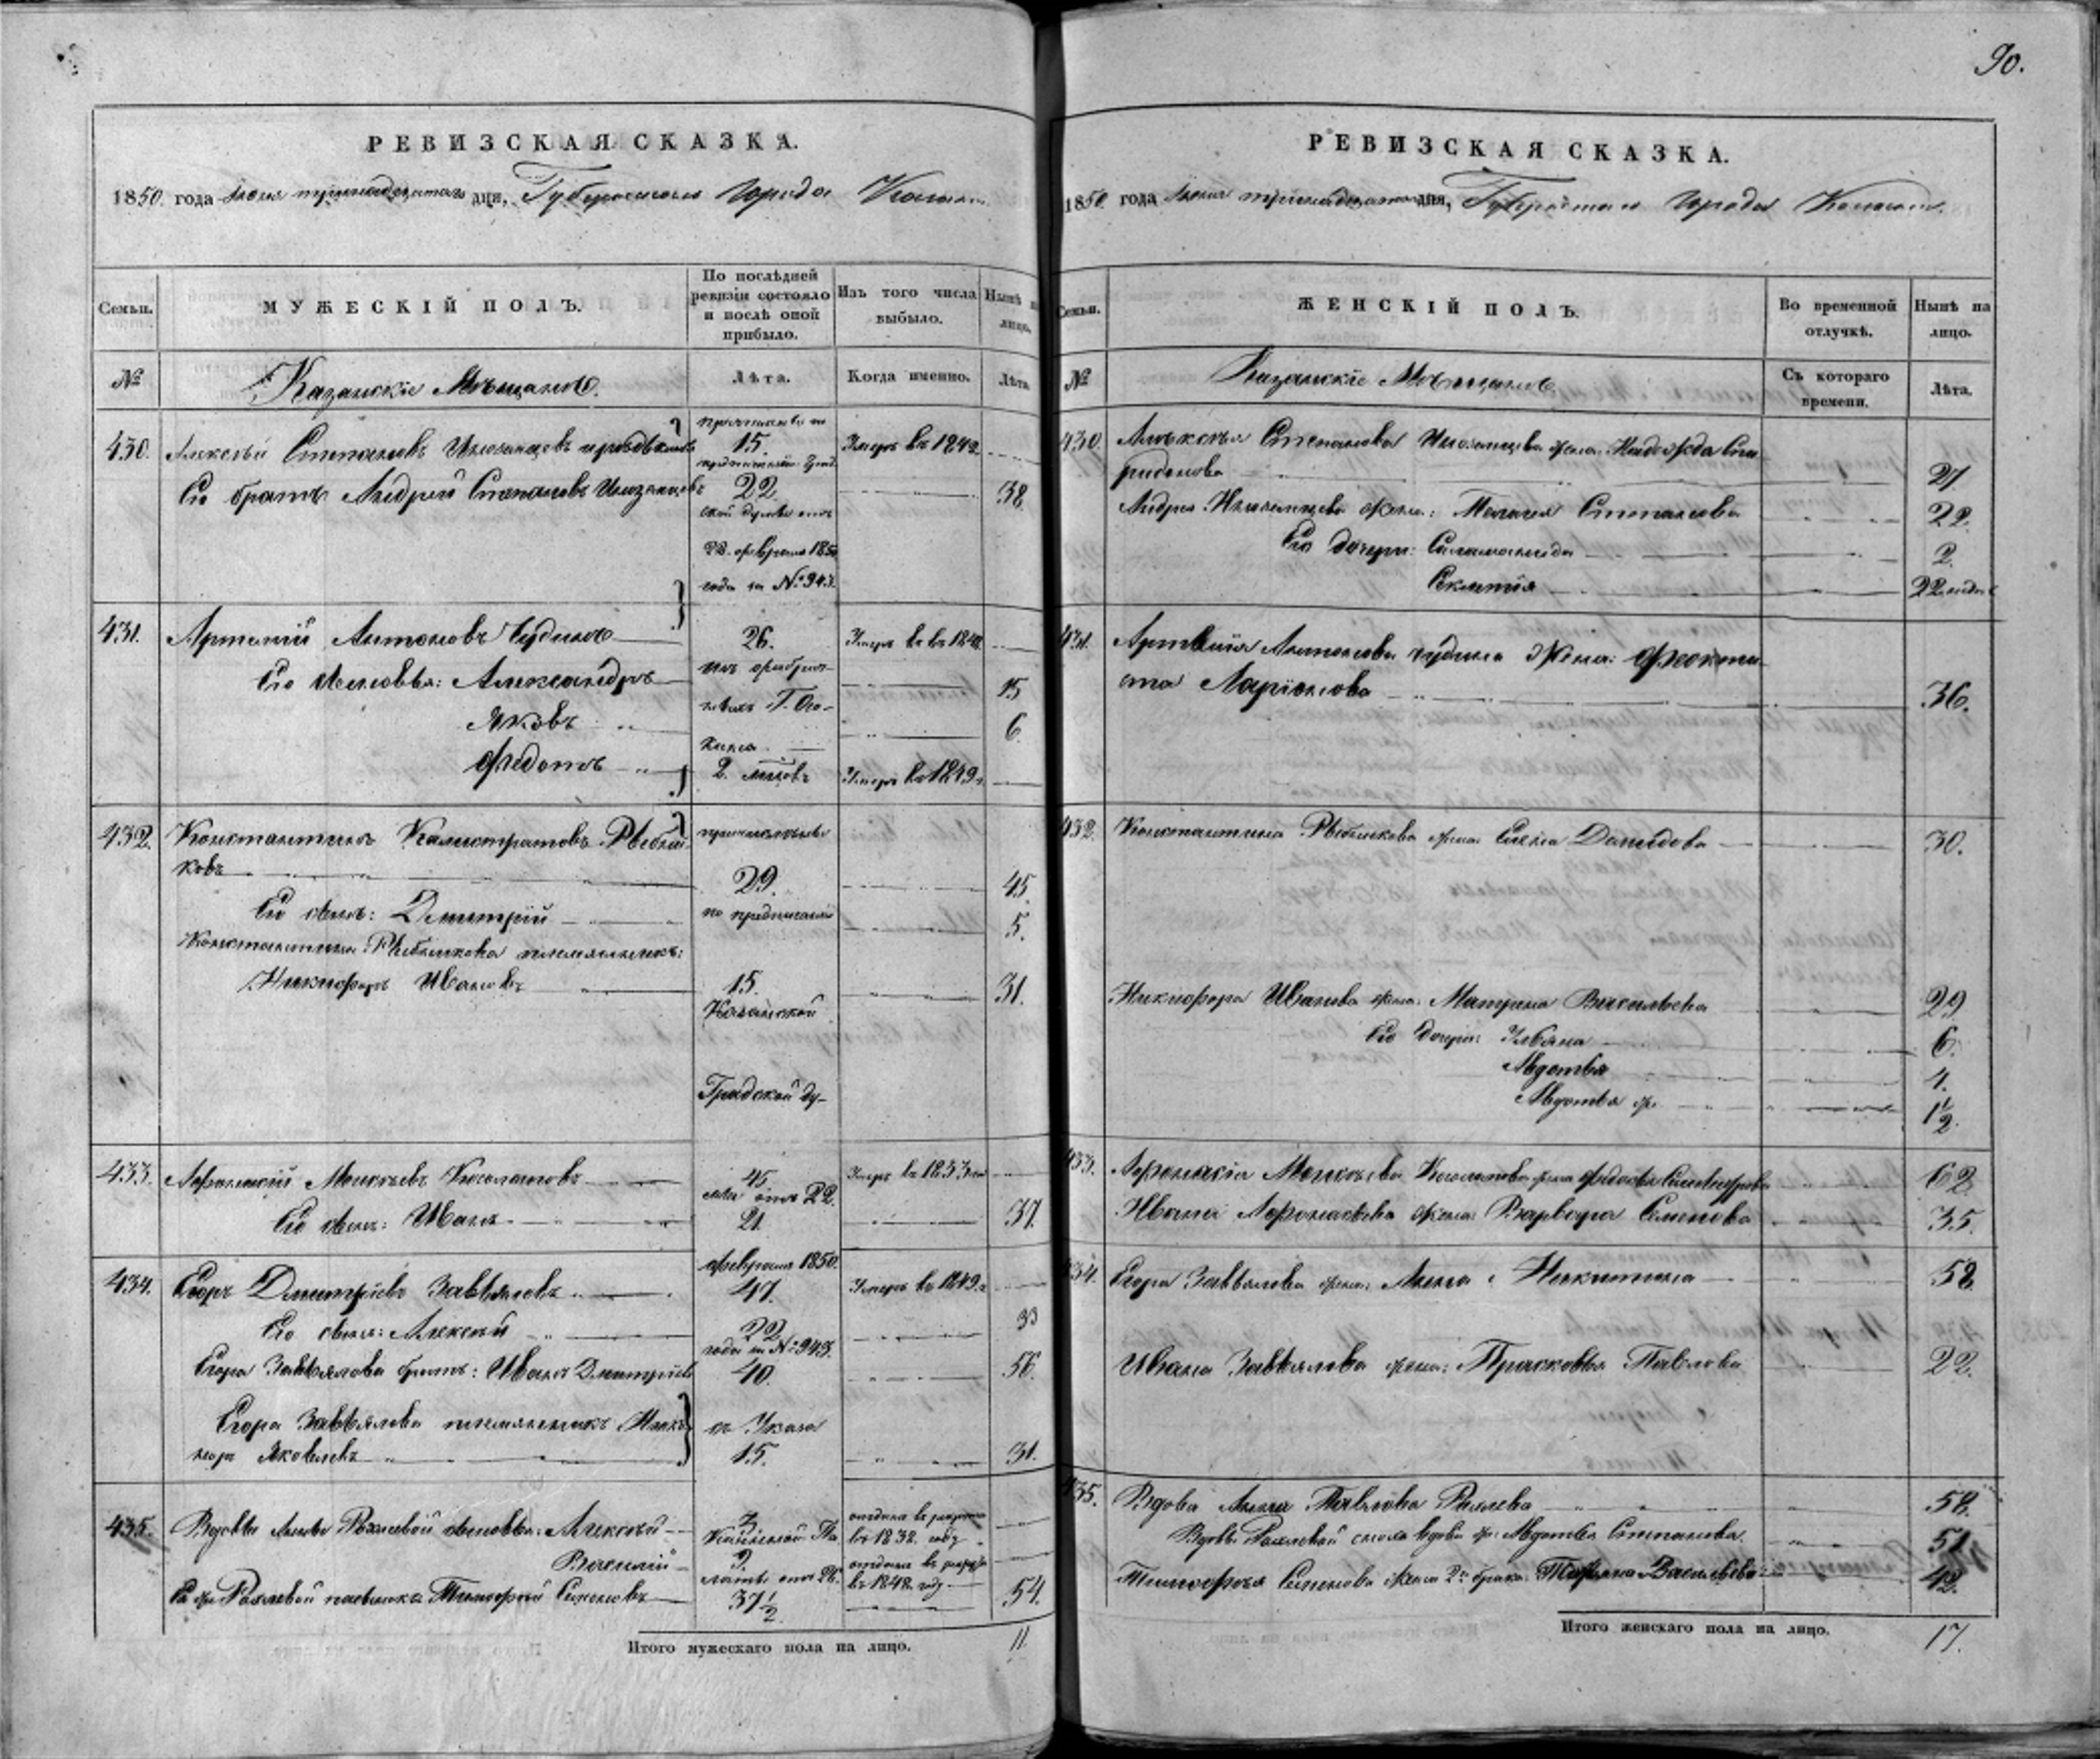 90.
РЕВИЗСКАЯ СКАЗКА.
1850 года Июня тринадцатаго дня, Губернскаго Города Казани
Семьи.
МУЖЕСКІЙ ПОЛЪ.
По послѣдней ревизіи состояло и послѣ оной прибыло.
Изъ того числа выбыло.
Нынѣ на лицо.
№
Казанскіе Мѣщане.
Лѣта.
Когда именно.
Лѣта
430. Алексѣй Степановъ Иноземцевъ 15. Умеръ въ 1842.
Его братъ Андрей Степановъ Иноземцевъ 22 38.
ской думы отъ
22. февраля 1850
года за №943.
431. Артемій Антоновъ Чудинов 26. Умеръ въ 1848
Его сыновья: Александръ 15
Яковъ 6
Федотъ 2. Умеръ въ 1849
432. Константинъ Калистратовъ Рябчиковъ 29. 45.
Его сынъ: Дмитрій 5.
по предписанію
Константина Рябчикова племянникъ:
Никифоръ Ивановъ 15. 31.
Казанской
Градской Ду-
433. Афонасій Моисѣевъ 45 Умеръ въ 1833
мы отъ 22.
Его сынъ: Иванъ 21. 37.
февраля 1850.
434. Егоръ Дмитріевъ Завьяловъ 47. Умеръ въ 1849
Его сынъ: Алексѣй 22 33
года за №943.
Егора Завьялова братъ: Иванъ Дмитріевъ 40. 56.
Егора Завьялова племянникъ
Яковлевъ 15. 31.
435. Вдовы Анны сыновья: Алексѣй 3 отданъ въ рекруты въ 1832. году
Василій 9. отданъ въ рекруты въ 1848 году
Тимофей Семеновъ 37 1/2 54.
Итого мужескаго пола на лицо. 11.
РЕВИЗСКАЯ СКАЗКА.
1850 года Июня тринадцатаго дня, Губернскаго Города Казани.
Семьи.
ЖЕНСКІЙ ПОЛЪ.
Во временной отлучкѣ.
Нынѣ на лицо.
№
Казанскіе Мѣщане
Съ котораго времени.
Лѣта.
430. Алексѣя Степанова Иноземцева жена: Надежда Спиридонова 27
Андрея Иноземцева жена: Степанова 22.
Его дочери: Саламанида 2.
22
431. Артемія Антонова Чудина Жена: Феоктиста Ларіонова 36.
432. Константина Рябчикова жена: Елена Давыдова 30.
Никифора Иванова жена: Матрена Васильева 29
Его дочери: Ульяна 6.
Авдотья 4.
Авдотья 1 1/2.
433. Афонасія Моисѣева жена 62
Ивана Афонасьева жена: Варвара Семенова 35.
434. Егора Завьялова жена: Анна Никитина 58
Ивана Завьялова жена: Прасковья Павлова 22.
435. Вдова Анна Павлова 58.
Авдотья Степанова. 51
Тимофея Семенова жена 2го брака: Татьяна Васильева 42.
Итого женскаго пола на лицо. 17.